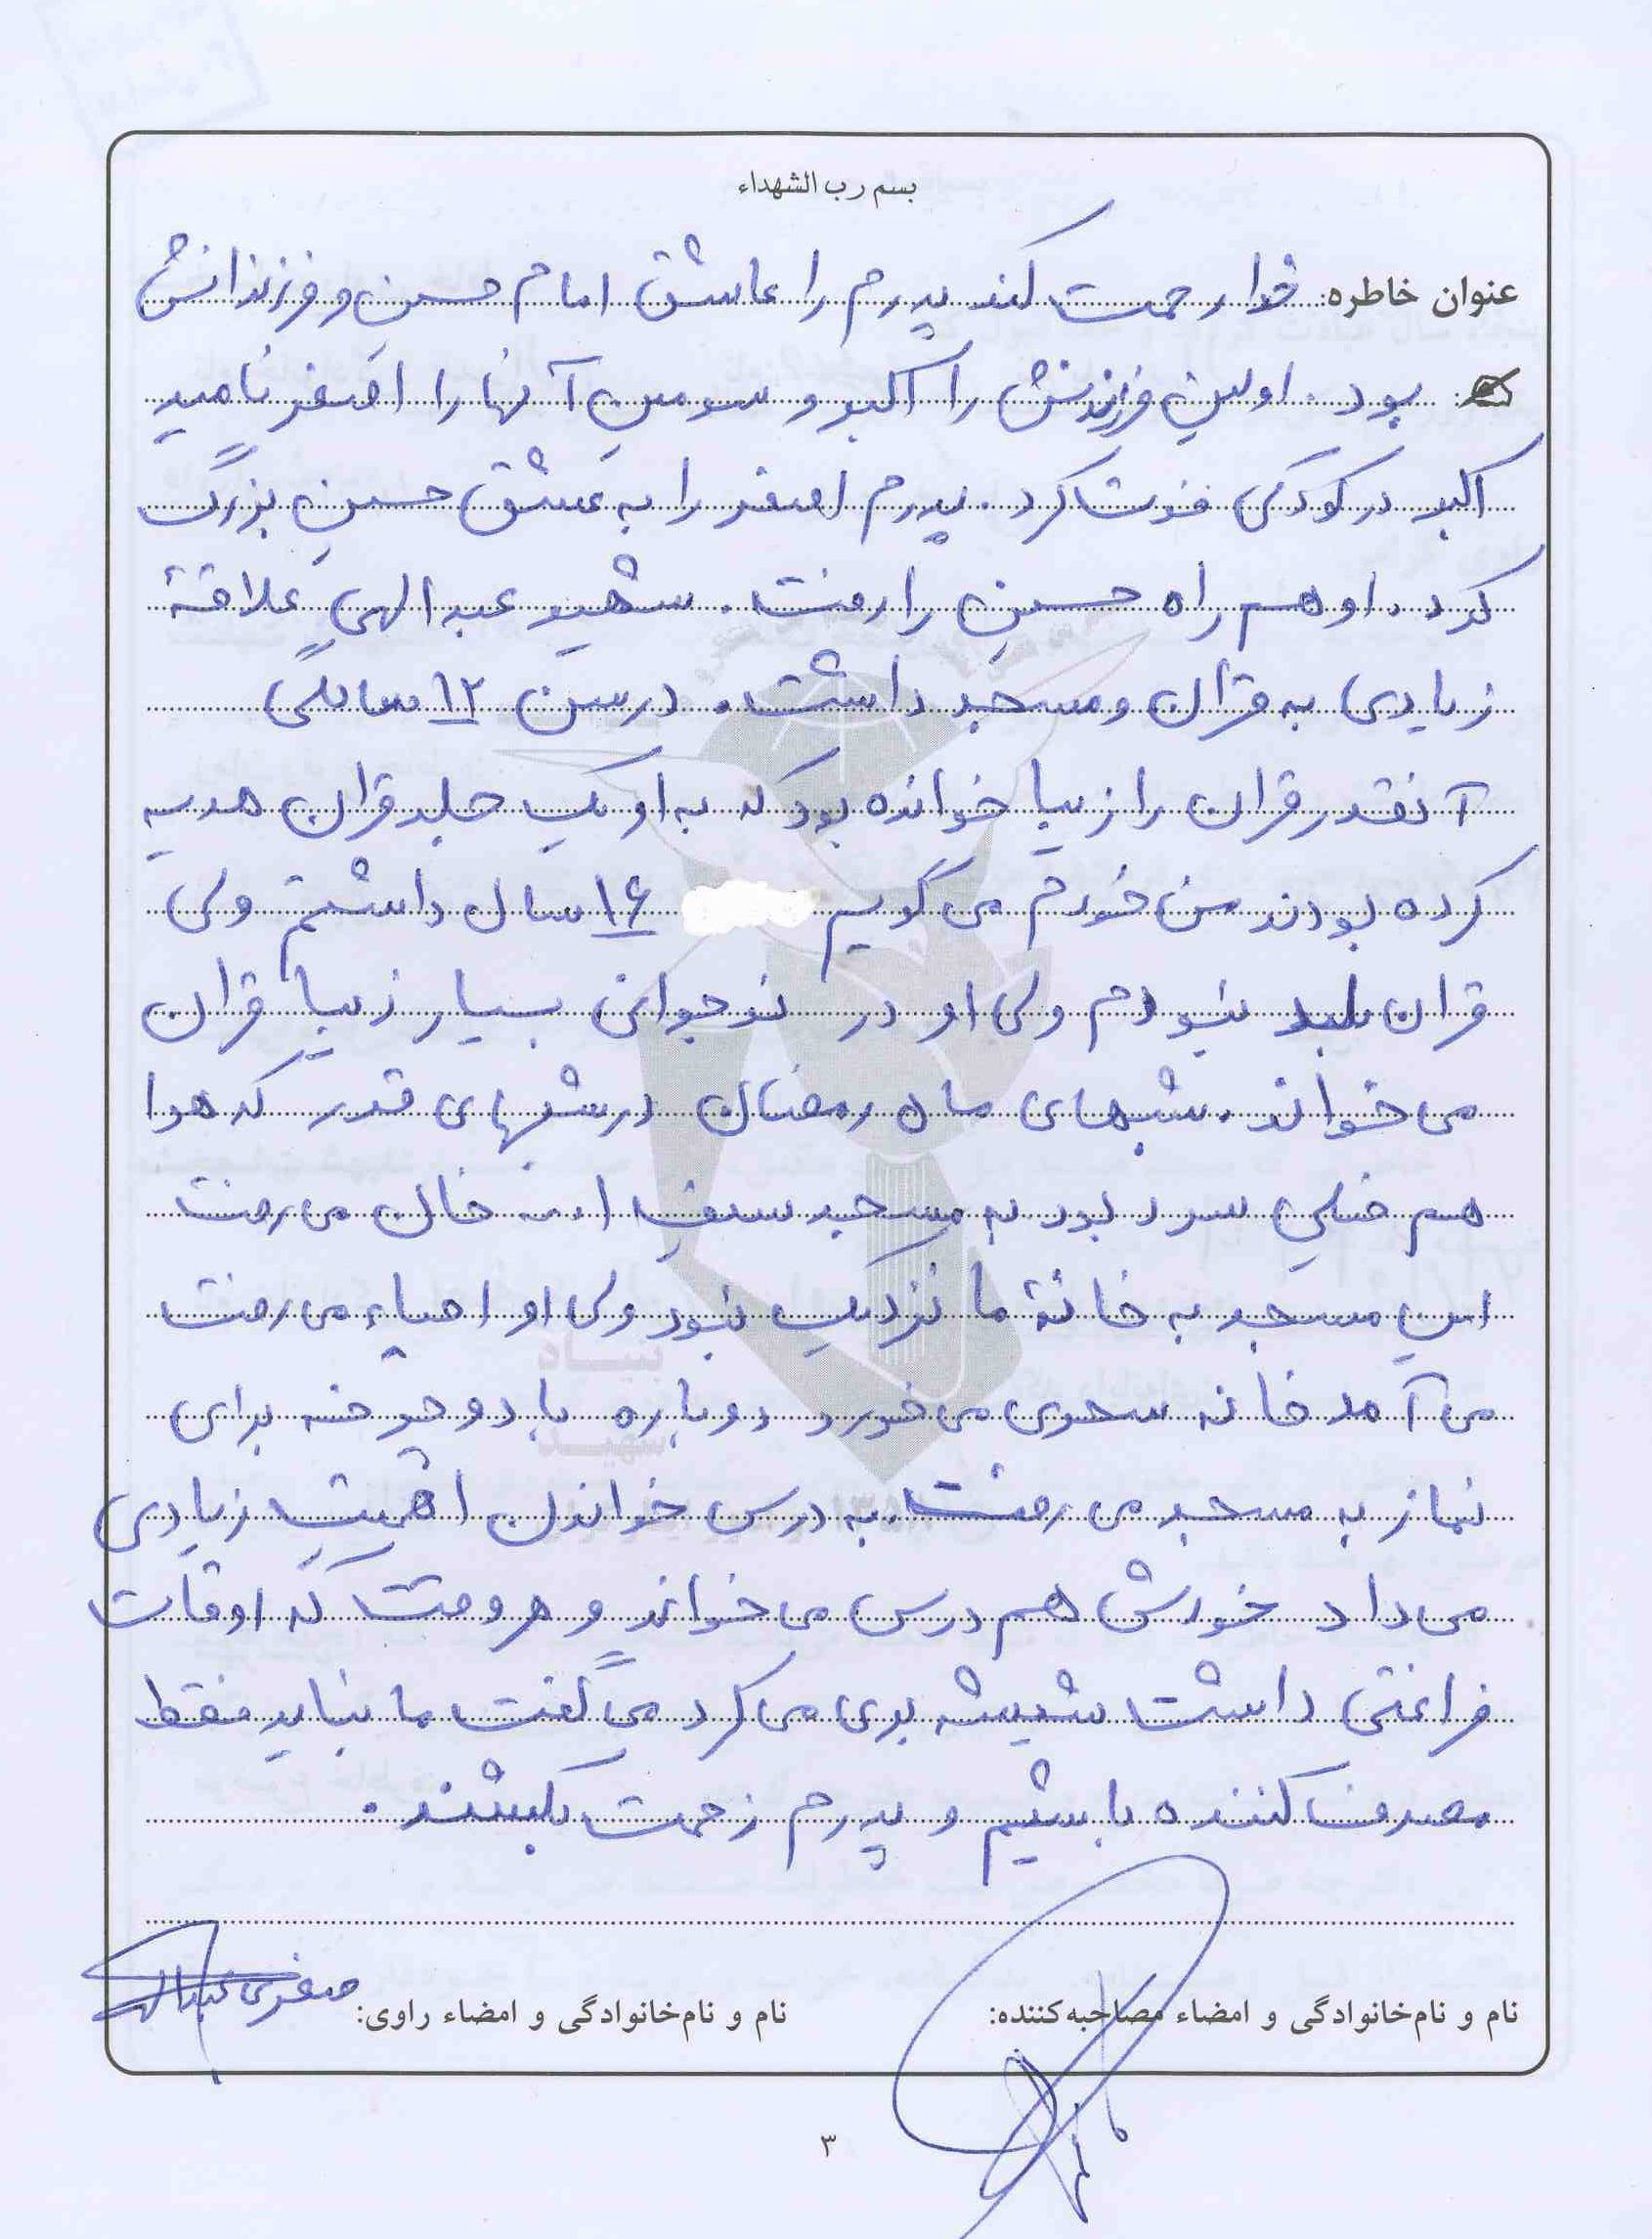 بسم رب الشهداء
عنوان خاطره: خدا رحمت کند پدرم را عاشق امام حسین و فرزندانش
بود. اولین فرزندش را اکبر و سومین آنها را اصغر نامید
اکبر در کودکی فوت کرد. پدرم اصغر را به عشق حسین بزرگ
کرد. او هم راه حسین را رفت. شهید عبدالهی علاقهٔ
زیادی به قرآن و مسجد داشت. در سن ۱۲ سالگی
آنقدر قران را زیبا خوانده بود که به او یک جلد قران هدیه
کرده بودند من خودم می گویم ۱۶ سال داشتم ولی
قران بلد نبودم ولی او در نوجوانی بسیار زیبا قران
می خواند. شبهای ماه رمضان در شبهای قدر که هوا
هم خیلی سرد بود به مسجد سیف ا... خان می رفت
این مسجد به خانهٔ ما نزدیک نبود ولی او احیاء می رفت
می آمد خانه سحری می خورد دوباره با دوچرخه برای
نماز به مسجد می رفت. به درس خواندن اهمیت زیادی
می داد خودش هم درس می خواند و هر وقت که اوقات
فراغتی داشت شیشه بری می کرد می گفت ما نباید فقط
مصرف کننده باشیم و پدرم زحمت بکشند.
نام و نام‌خانوادگی و امضاء مصاحبه‌کننده:
نام و نام‌خانوادگی و امضاء راوی: صغری عبدالهی
۳
بنیاد
شهید